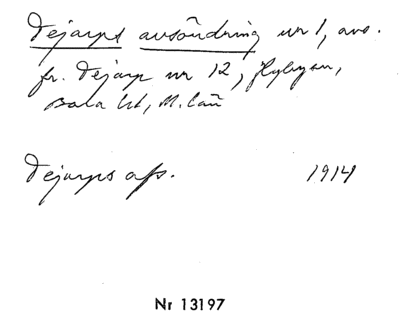 Dejarps avsöndring nr 1, avs.
fr. Dejarp nr 12, Hyby sn,
Bara hd, M. län
Dejarps afs. 1914
Nr 13197